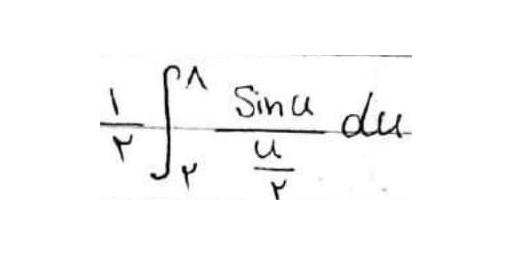 \frac{۱}{۲} \int_{۲}^{۸} \frac{\sin u}{\frac{u}{۲}} du